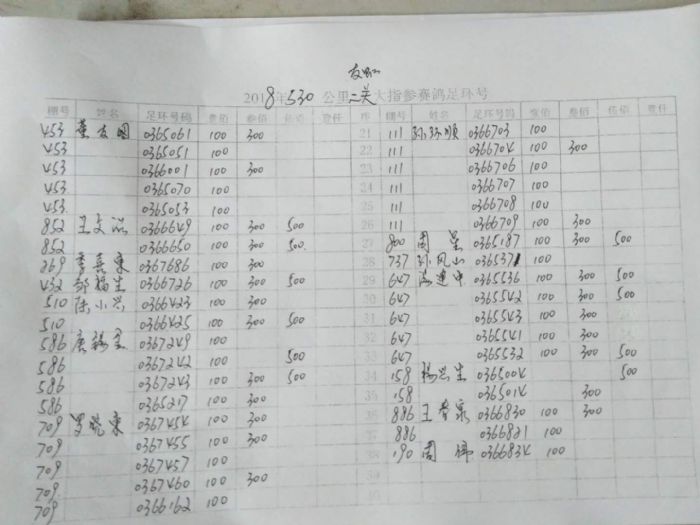 2018年530公里二关大指参赛鸽足环号
棚号 姓名 足环号码 壹佰 叁佰 伍佰 壹仟 序 棚号 姓名 足环号码 壹佰 叁佰 伍佰 壹仟
453 董友国 0365061 100 300 21 111 孙环顺 0366703 100
453 0365051 100 22 111 0366704 100 300
453 0366001 100 300 23 111 0366706 100
453 0365070 100 24 111 0366707 100
453 0365053 100 25 111 0366708 100
852 王文 0366649 100 300 500 26 111 0366709 100 300
852 0366650 100 300 500 27 800 周 0365187 100 300 500
869 李喜东 0367686 100 300 28 737 孙凤山 0365371 100
432 邹福生 0366726 100 300 500 29 647 连中 0365536 100 300 500
510 陈小兴 0366423 100 300 30 647 0365542 100 300 500
510 0366425 100 300 500 31 647 0365543 100 300
586 唐 0367249 100 32 647 0365541 100 300
586 0367242 500 33 647 0365532 100 300 500
586 0367243 100 300 500 34 158 杨兴生 0365004 500
586 0365217 100 300 35 158 0365014 300
709 罗晓东 0367454 100 300 36 886 王 泉 0366830 100 300
709 0367455 100 300 37 886 0366821 100
709 0367457 100 38 190 周伟 0366834 100
709 0367460 100 300 39
709 0366162 100 40